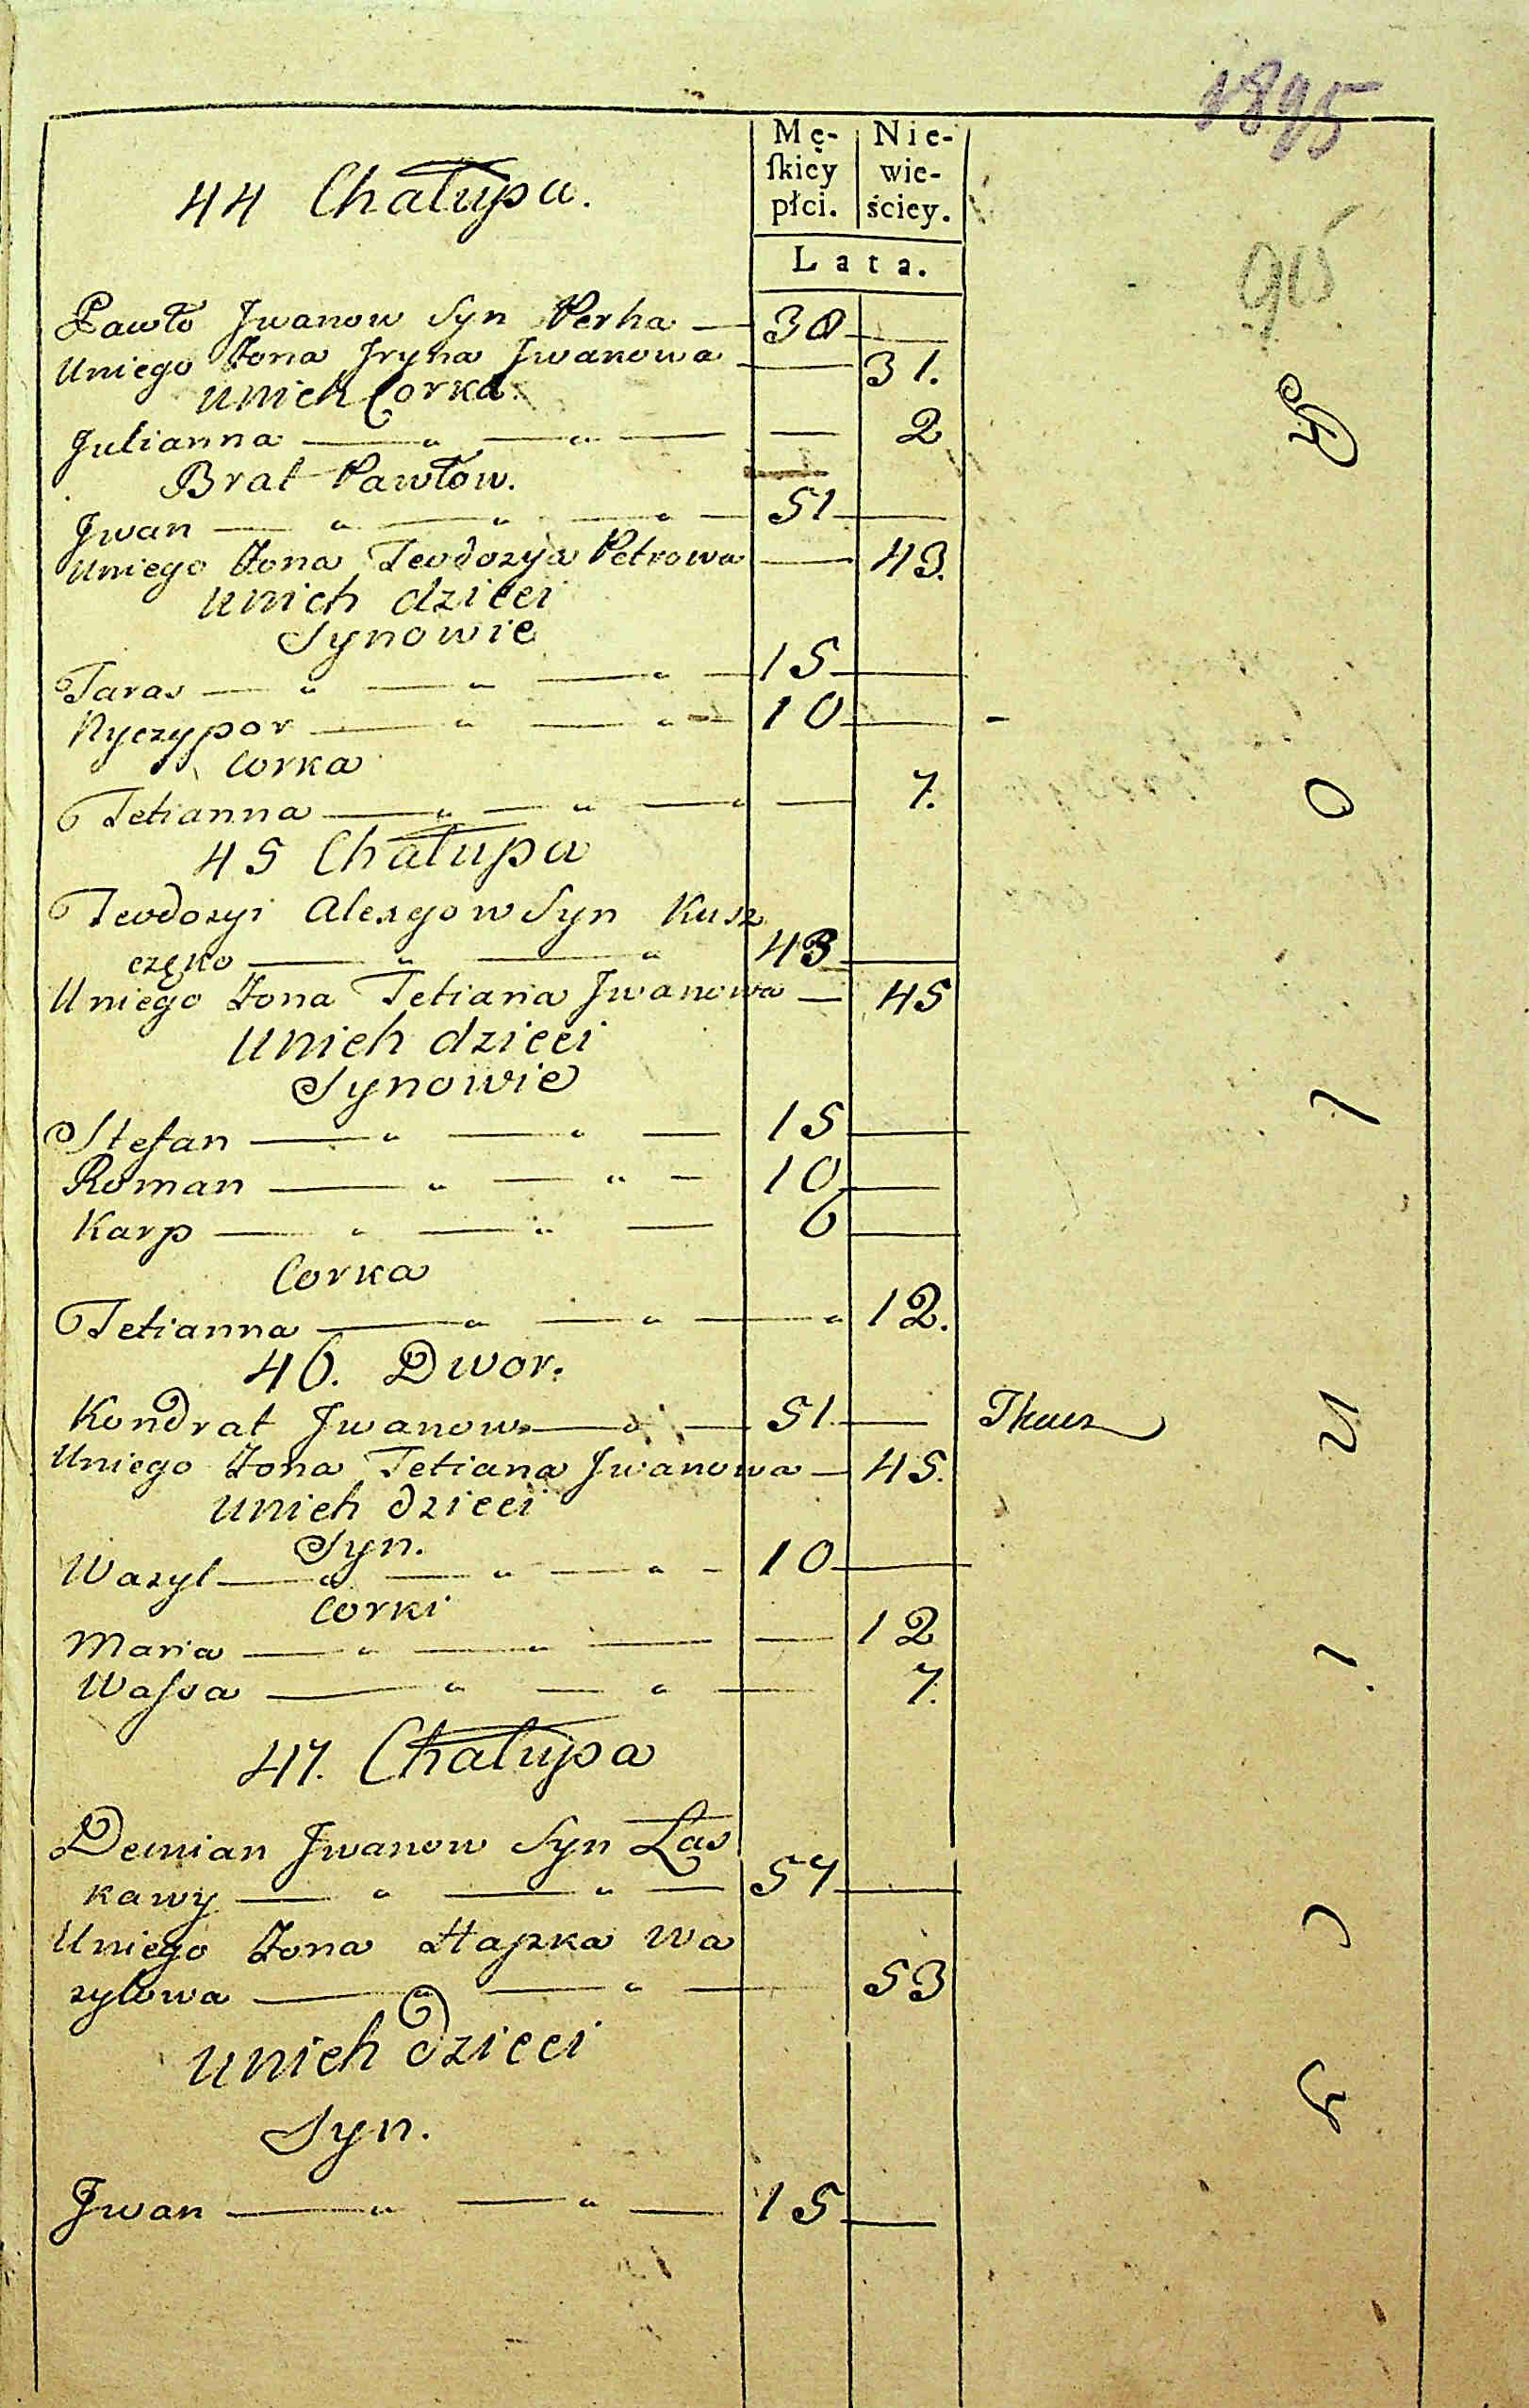 1895
Mę-
ſkiey
płci.
Nie-
wie-
ściey.
Lata.
44 Chałupa.
Pawło Jwanow Syn Perha — 38 —
Uniego Żona Jryna Jwanowa — 31.
Unich Corka
Julianna — " — " — — 2
Brat Pawłow.
Jwan — " — " — " — 51 —
Uniego Żona Teodozya Petrowa — 43.
Unich dzieci
Synowie
Taras — " — " — " — 15 —
Nyczypor — " — " — 10 —
Corka
Tetianna — " — " — " — 7.
45 Chałupa
Teodozyi Alexgow Syn Kusz
częko — " — " 43 —
Uniego Żona Tetiana Jwanowa — 45
Unich dzieci
Synowie
Stefan — " — " — 15 —
Roman — " — " — 10 —
Karp — " — " — 6 —
Corka
Tetianna — " — " — " 12.
46. Dwor.
Kondrat Jwanow — " — 51 — Tkacz
Uniego Żona Tetiana Jwanowa — 45.
Unich dzieci
Syn.
Wazyl — " — " — " — 10 —
Corki
Maria — " — " — — 12
Waſsa — " — " — 7.
47. Chałupa
Demian Jwanow Syn Łas
kawy — " — " — 57 —
Uniego Żona Hapka Wa
zylowa — " — " — 53
Unich dzieci
Syn.
Jwan — " — " — 15 —